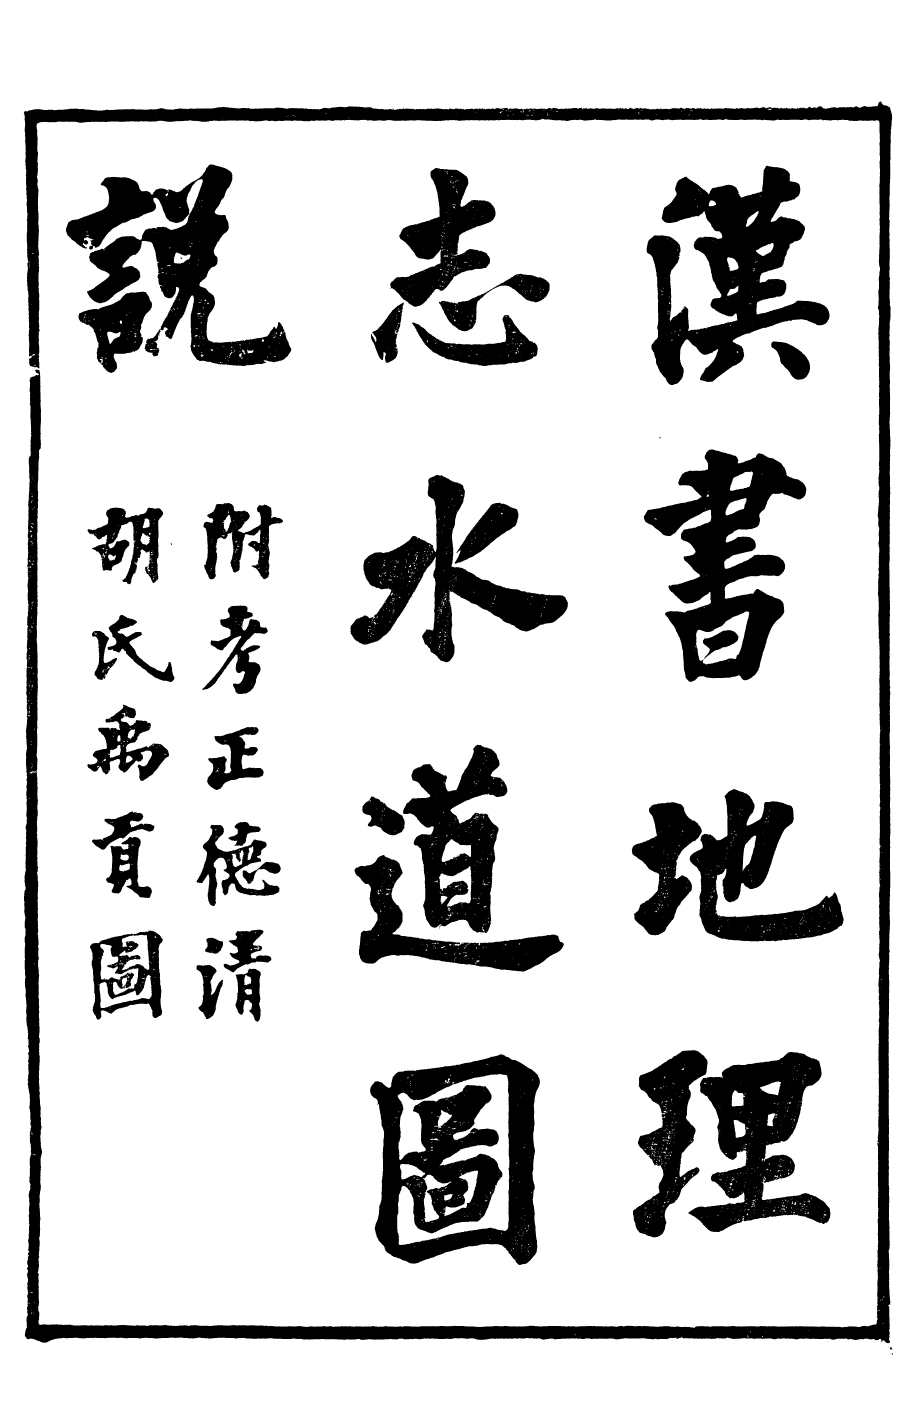 漢書地理
志水道圖
說
附考正德清
胡氏禹貢圖